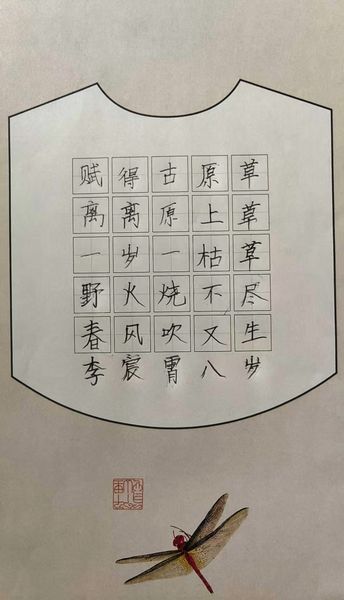 赋得古原草
离离原上草
一岁一枯草
野火烧不尽
春风吹又生
李宸霄八岁